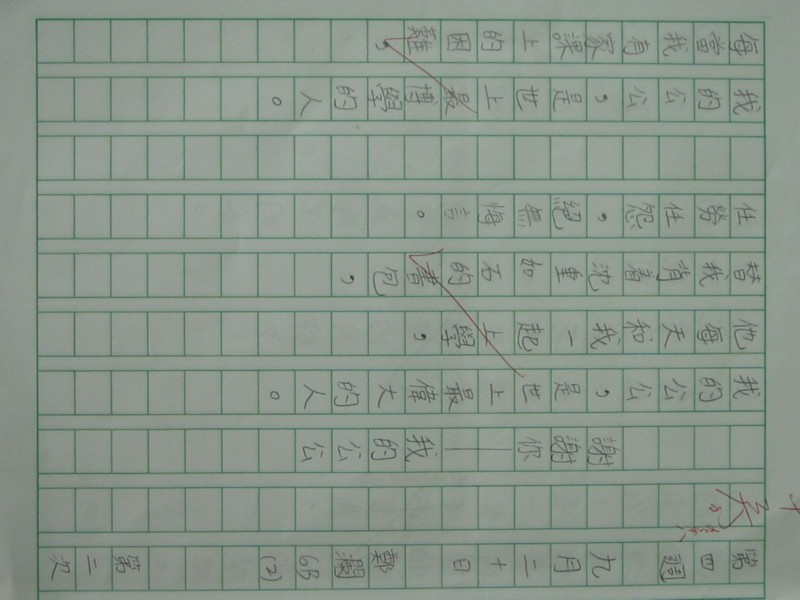 第四週 九月二十日 鄭瀾 6B (2) 第二次
謝謝你——我的公公
我的公公，是世上最偉大的人。
他每天和我一起上學，
替我背着沈重如石的書包，
任勞任怨，絕無悔言。
我的公公，是世上最博學的人。
每當我有家課上的困難，